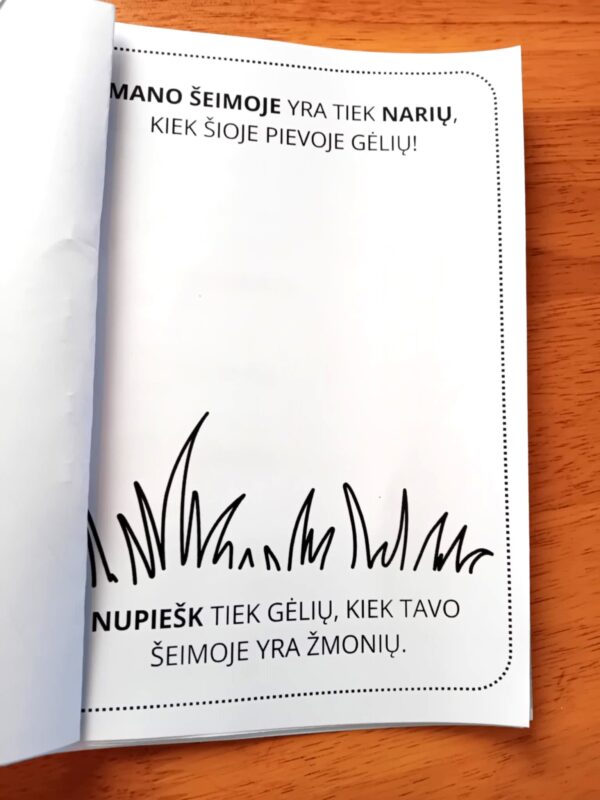 MANO ŠEIMOJE YRA TIEK NARIŲ,
KIEK ŠIOJE PIEVOJE GĖLIŲ!
NUPIEŠK TIEK GĖLIŲ, KIEK TAVO
ŠEIMOJE YRA ŽMONIŲ.